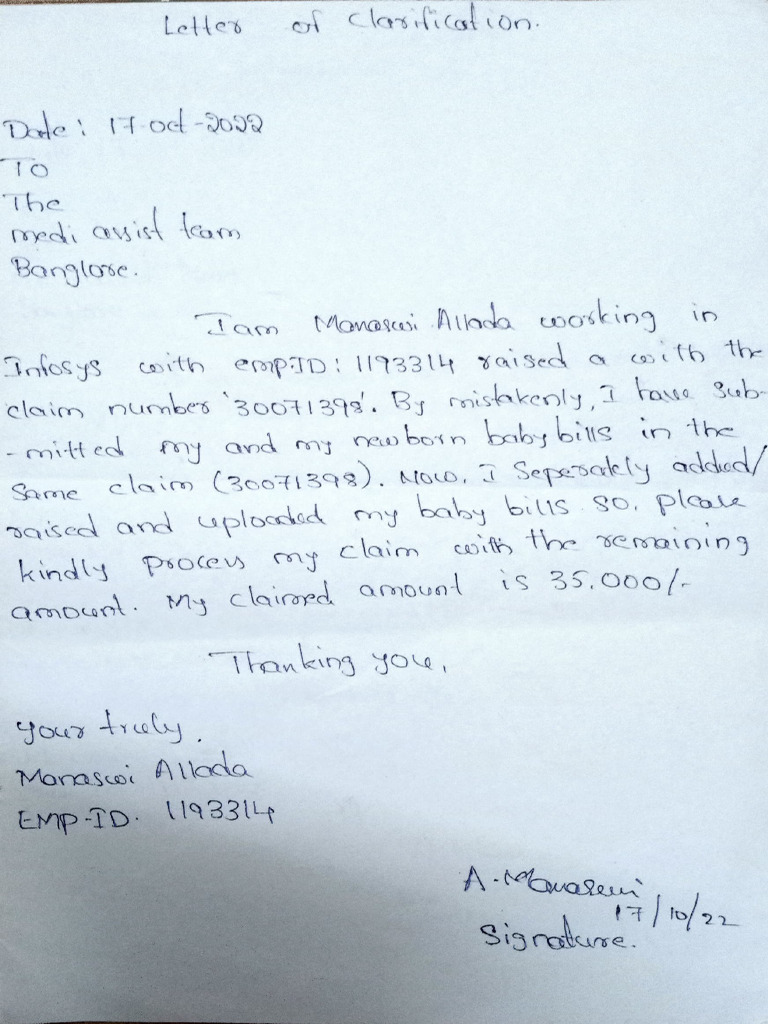 Letter of Clarification.
Date: 17-oct-2022
TO
The
medi assist team
Banglore.
I am Manaswi Allada working in
Infosys with empID: 1193314 raised a with the
claim number '30071398'. By mistakenly, I have sub-
-mitted my and my newborn baby bills in the
same claim (30071398). Now, I Seperately added/
raised and uploaded my baby bills so, please
kindly process my claim with the remaining
amount. My claimed amount is 35,000/-
Thanking you,
your truly,
Manaswi Allada
EMP-ID. 1193314
A. Manaswi
17/10/22
Signature.